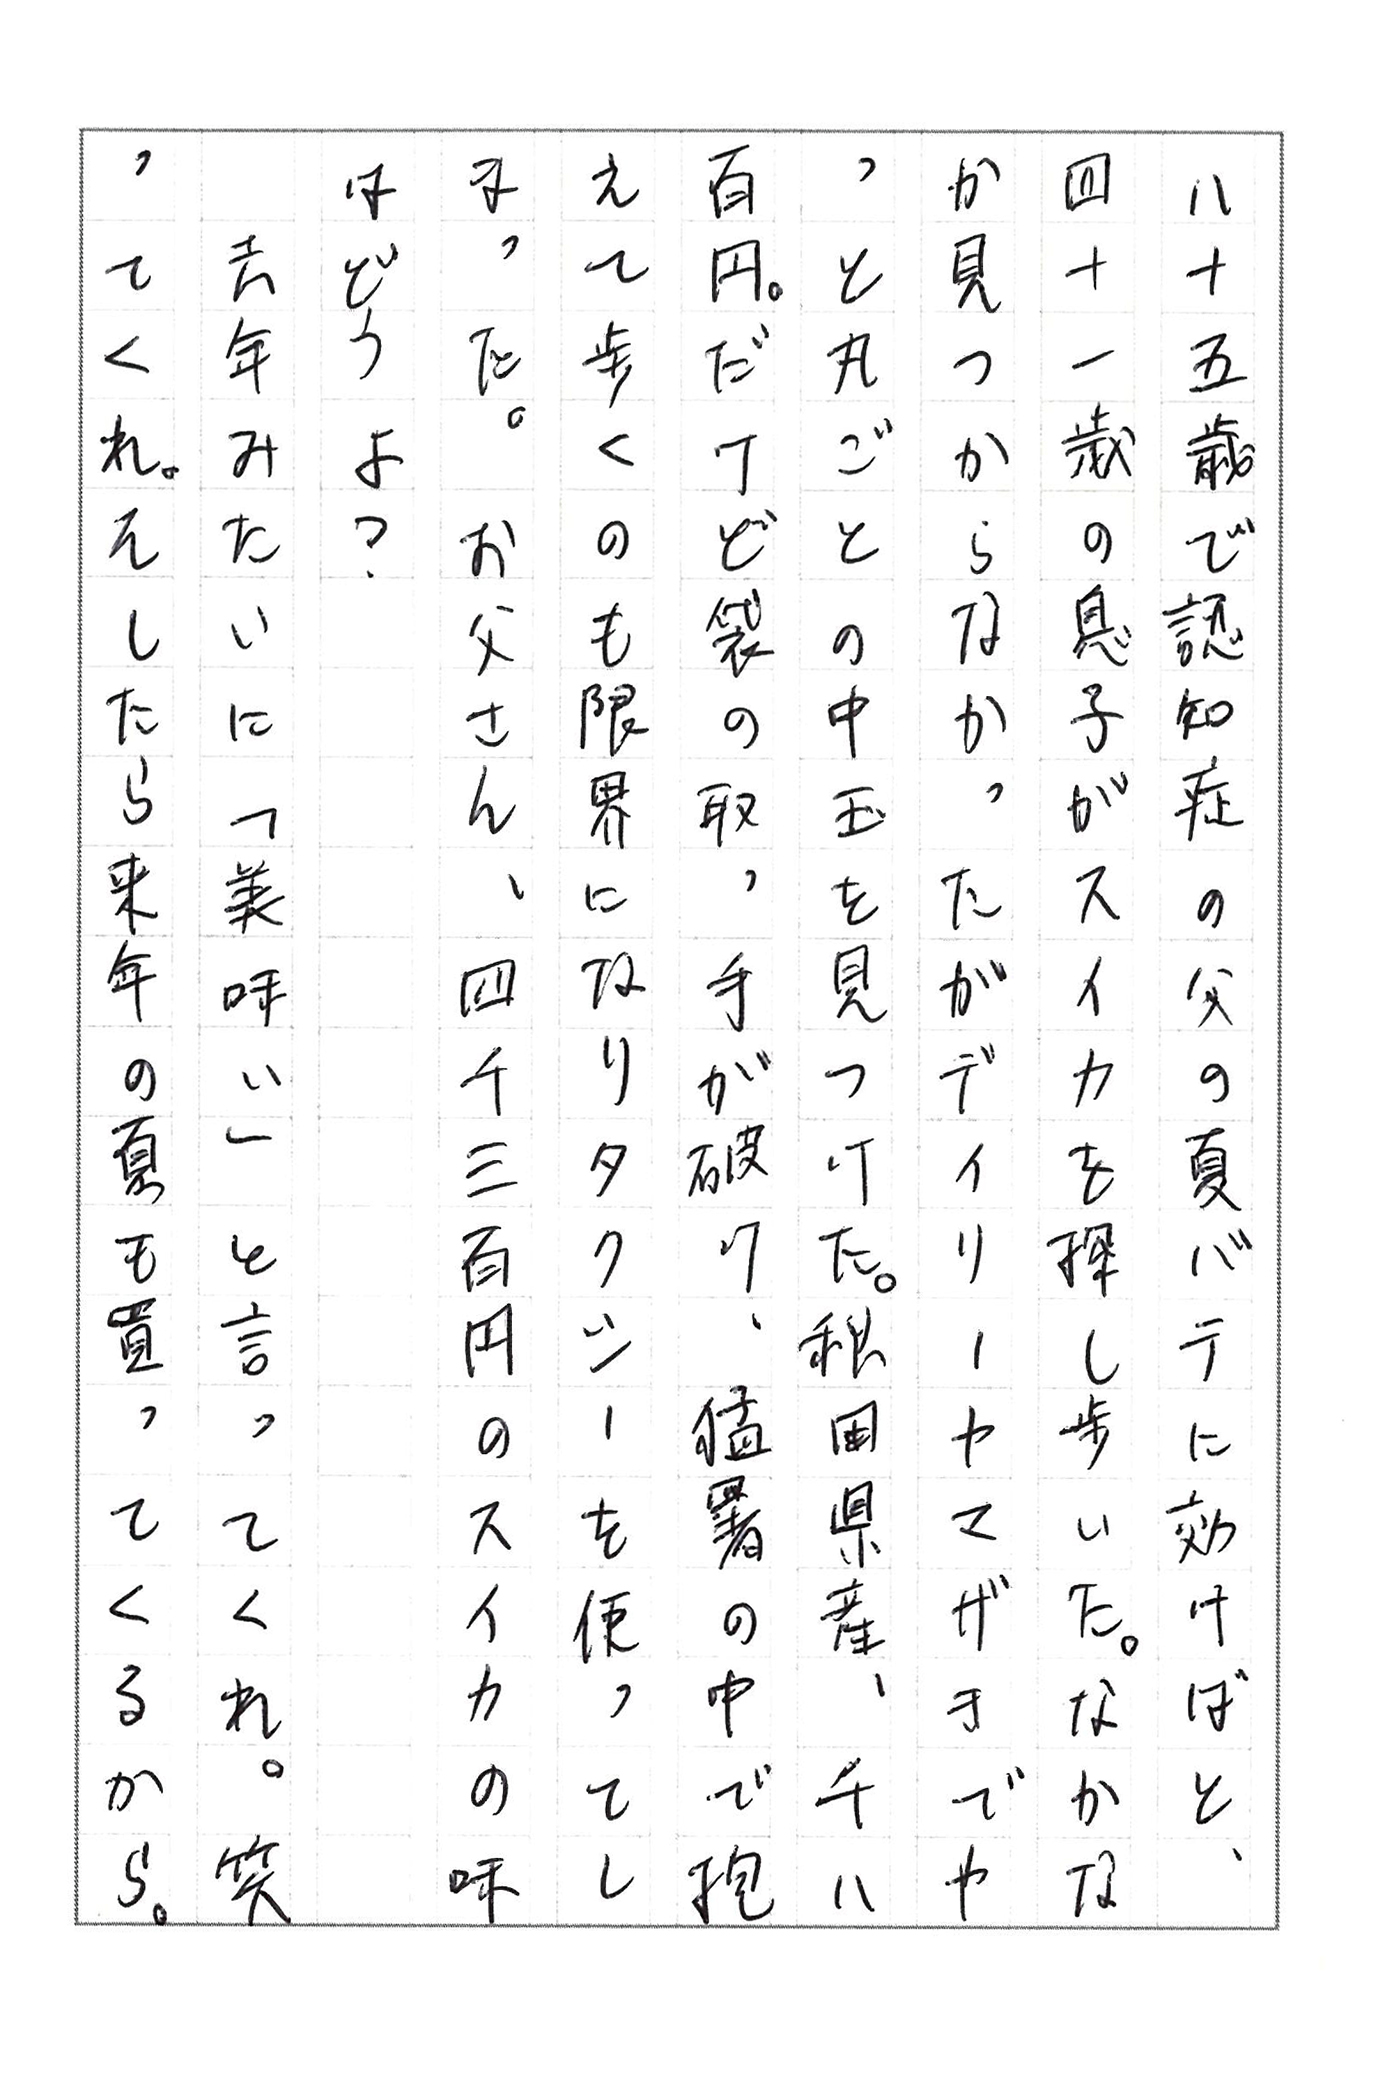 八十五歳で認知症の父の夏バテに効けばと、
四十一歳の息子がスイカを探し歩いた。なかな
か見つからなかったがデイリーヤマザキでや
っと丸ごとの中玉を見つけた。秋田県産、千八
百円。だけど袋の取っ手が破け、猛暑の中で抱
えて歩くのも限界になりタクシーを使ってし
まった。お父さん、四千三百円のスイカの味
はどうよ?
去年みたいに「美味い」と言ってくれ。笑
ってくれ。そしたら来年の夏も買ってくるから。